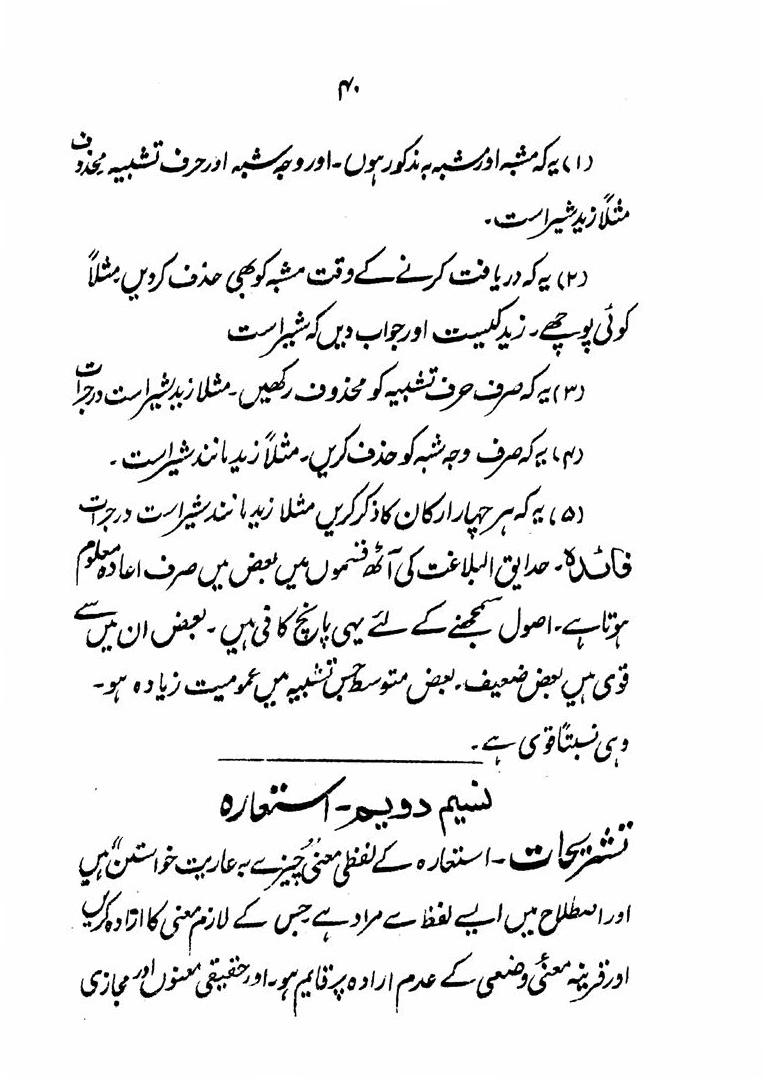 ۴۰
(۱) یہ کہ مشبہ اور مشبہ بہ مذکور ہوں۔ اور وجہ شبہ اور حرف تشبیہ محذوف
مثلاً زید شیر است۔
(۲) یہ کہ دریافت کرنے کے وقت مشبہ کو بھی حذف کردیں مثلاً
کوئی پوچھے۔ زید کیست اور جواب دیں کہ شیر است
(۳) یہ کہ صرف حرف تشبیہ کو محذوف رکھیں۔ مثلا زید شیر است در جرات
(۴) یہ کہ صرف وجہ شبہ کو حذف کریں۔ مثلاً زید مانند شیر است۔
(۵) یہ کہ ہر چہار ارکان کا ذکر کریں مثلا زید مانند شیر است در جرات
فائدہ۔ حدایق البلاغت کی آٹھ قسموں میں بعض میں صرف اعادہ معلوم
ہوتا ہے۔ اصول سمجھنے کے لئے یہی پانچ کافی ہیں۔ بعض ان میں سے
قوی ہیں بعض ضعیف۔ بعض متوسط جس تشبیہ میں عمومیت زیادہ ہو۔
وہی نسبتاً قوی ہے۔
نسیم دویم۔ استعارہ
تشریحات۔ استعارہ کے لفظی معنی "چیزے بہ عاریت خواستن" ہیں
اور اصطلاح میں ایسے لفظ سے مراد ہے جس کے لازم معنی کا ارادہ کریں
اور قرینہ معنیٔ وضعی کے عدم ارادہ پر قایم ہو۔ اور حقیقی معنوں اور مجازی